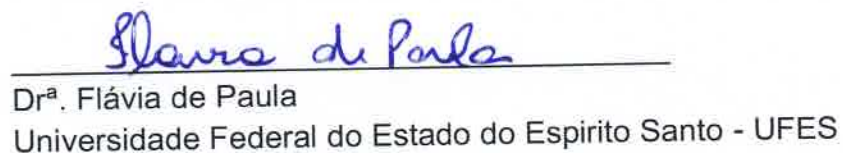 Flavia de Paula
Drª. Flávia de Paula
Universidade Federal do Estado do Espirito Santo - UFES